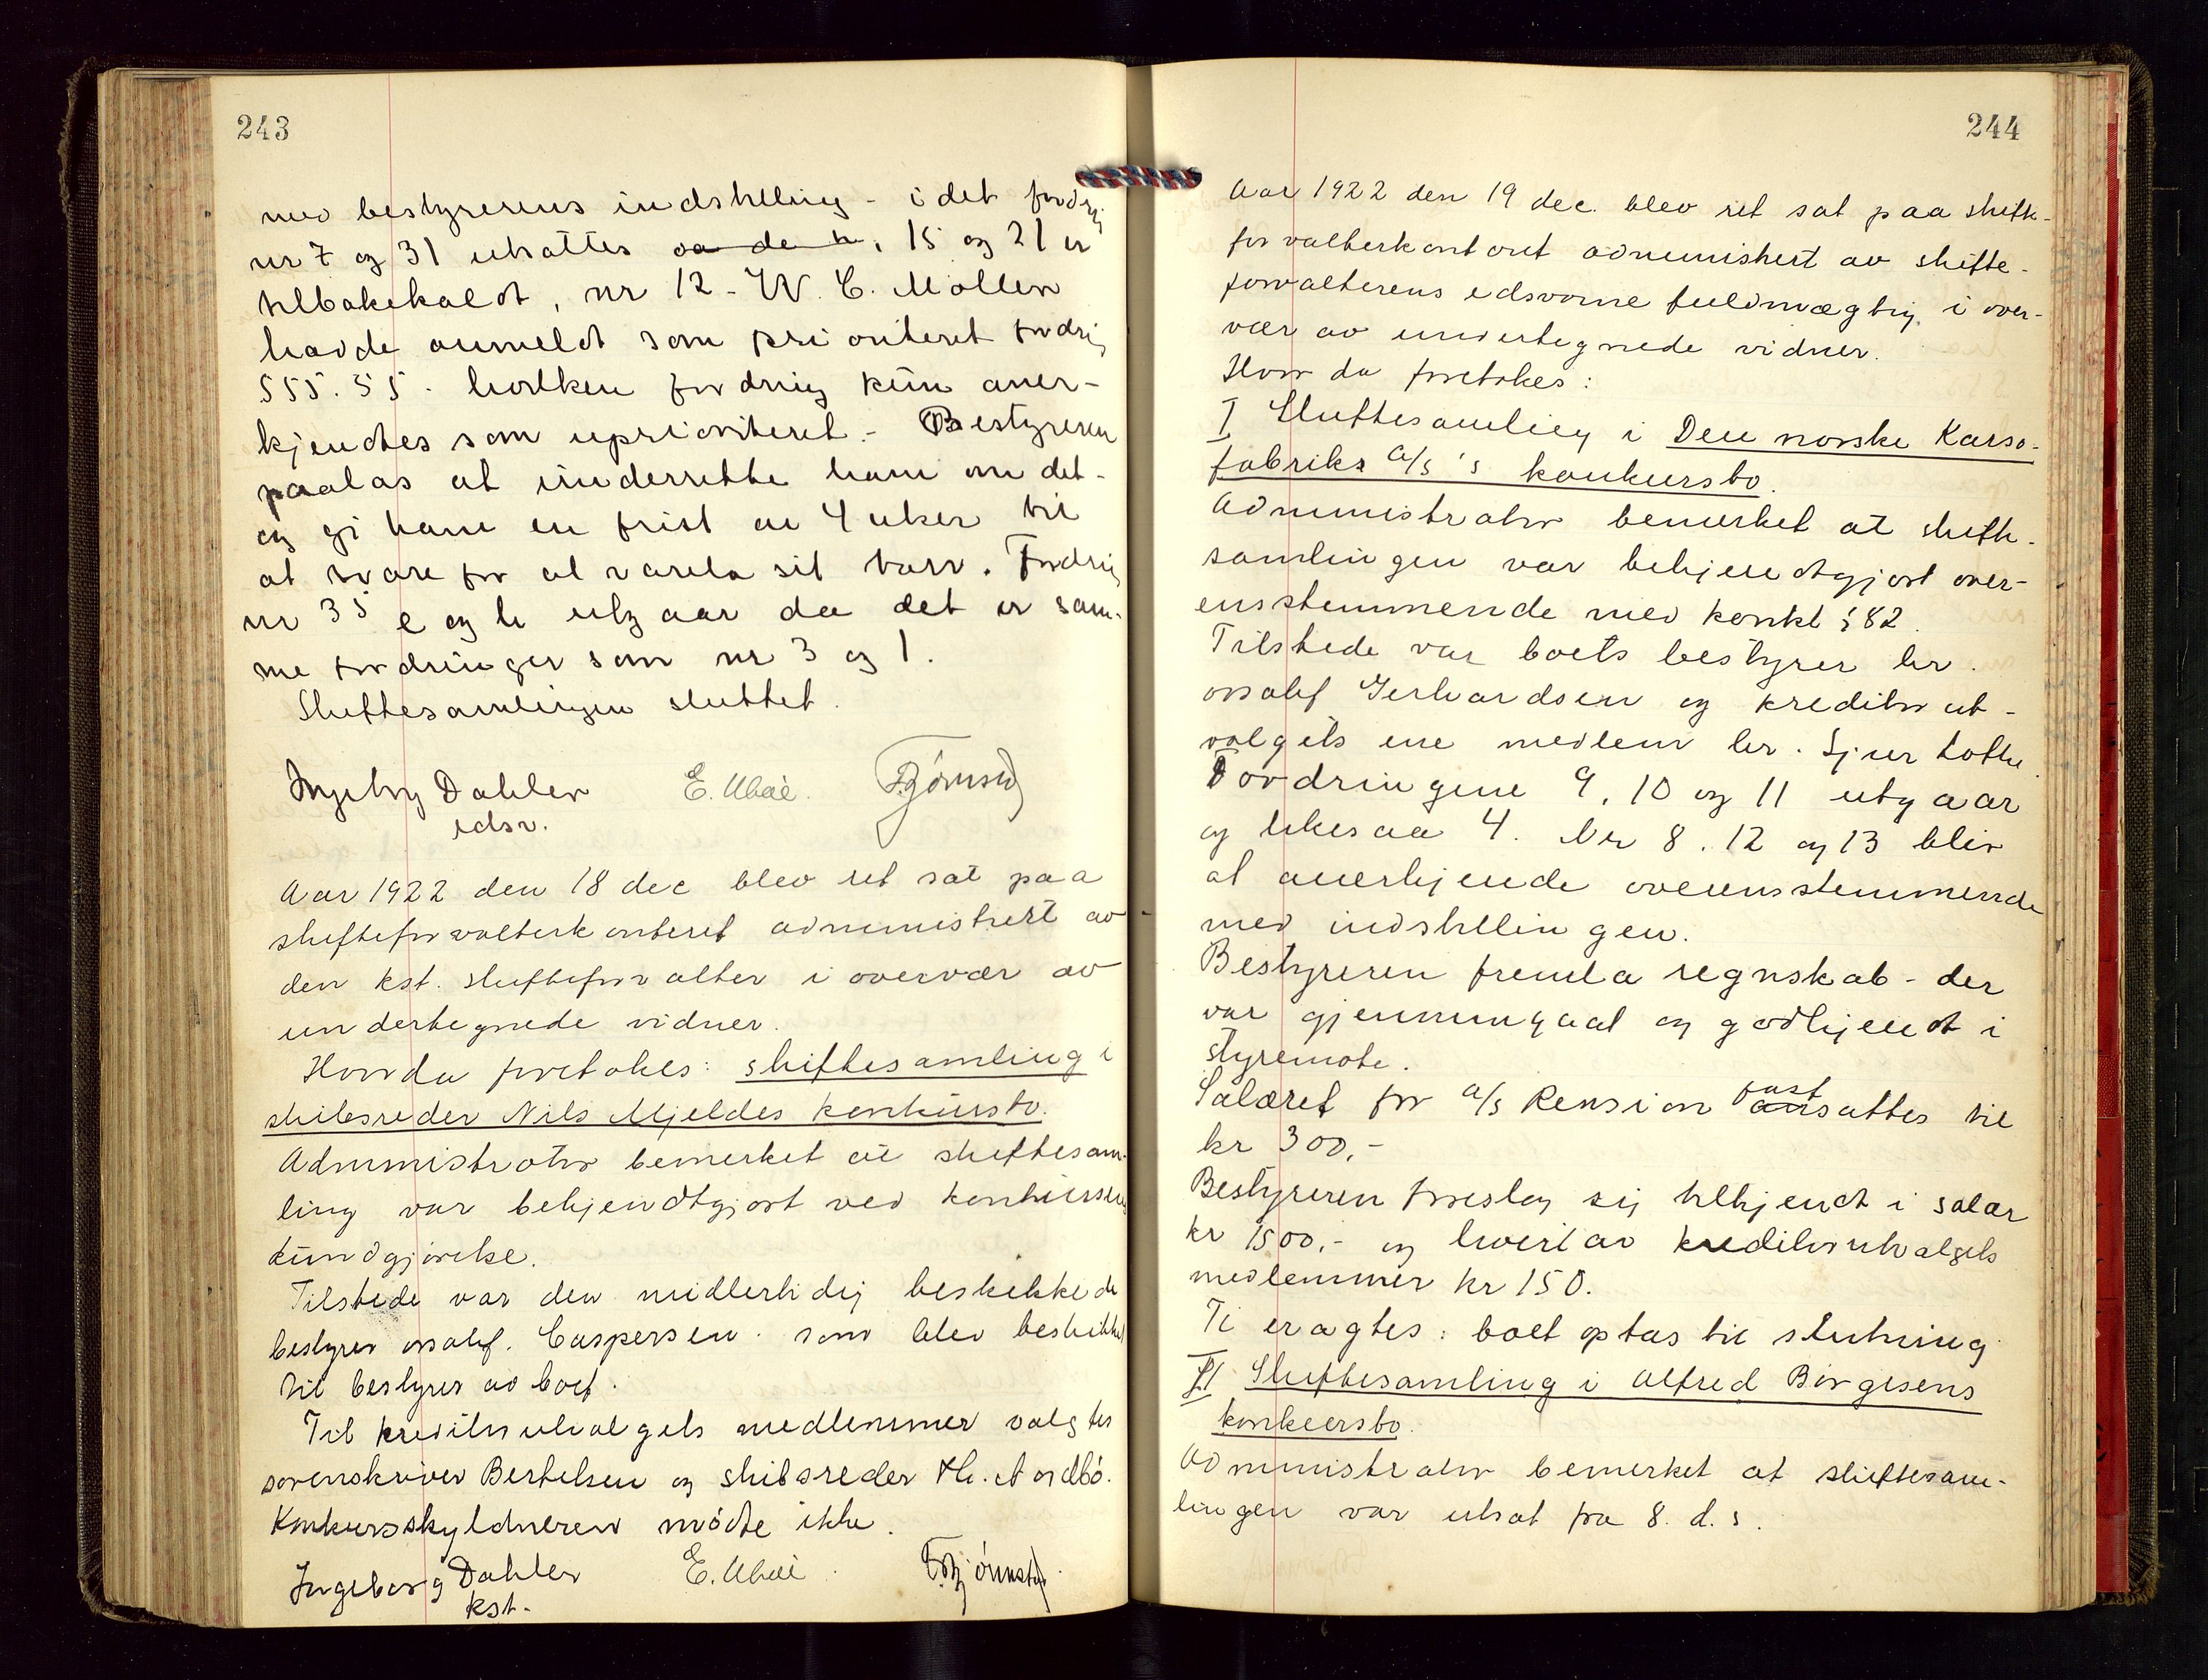 243
med bestyrerens indstilling - i det fordrg
nr 7 og 31 utsattes 15 og 21 er
tilbakekaldt, nr 12 - W. C. Møller
havde anmeldt som prioritert fordrg
555.55. hvilken fordring kun aner-
kjendtes som uprioritert. - Bestyreren
paalas at underrette ham om det -
og gi ham en frist av 4 uker til
at svare for at vareta sit tarv. Fordring
nr 35 e og h utgaar da det er sam-
me fordringer som nr 3 og 1.
Skiftesamlingen sluttet.
Ingebrg Dahler E.
edsv.
Aar 1922 den 18 dec blev ret sat paa
skifteforvalterkontoret administrert av
den kst. skifteforvalter i overvær av
undertegnede vidner.
Hvor da foretokes: skiftesamling i
skibsreder Nils Mjeldes konkursbo.
Administrator bemerket at skiftesam-
ling var bekjendtgjort ved konkursens
kundgjørelse.
Tilstede var den midlertidig beskikkede
bestyrer orsakf. Caspersen. som blev beskikket
til bestyrer av boet.
Til kreditorutvalgets medlemmer valgtes
sorenskriver Bertelsen og skibsreder Th. Nordbø.
Konkursskyldneren mødte ikke.
Ingeborg Dahler E.
kst.
244
Aar 1922 den 19 dec. blev ret sat paa skifte-
forvalterkontoret administrert av skifte-
forvalterens edsvorne fuldmægtig, i over-
vær av undertegnede vidner.
Hvor da foretokes:
I Skiftesamling i Den norske Karso-
fabriks a/s's konkursbo.
Administrator bemerket at skifte-
samlingen var bekjendtgjort over-
ensstemmende med konkl § 82.
Tilstede var boets bestyrer hr.
orsakf Gerhardsen og kreditorut-
valgets ene medlem hr. Sjur Lothe.
Fordringene 9, 10 og 11 utgaar
og likesaa 4. Nr 8. 12 og 13 blir
at anerkjende overensstemmende
med indstillingen.
Bestyreren fremla regnskab - der
var gjennemgaat og godkjendt i
styremøte.
Salæret for a/s Revision fastsattes til
kr 300,-
Bestyreren foreslog sig tilkjendt i salær
kr 1500,- og hvert av kreditorutvalgets
medlemmer kr 150.
Ti eragtes: boet optas til slutning
II Skiftesamling i Alfred Børgesens
konkursbo.
Administrator bemerket at skiftesam-
lingen var utsat fra 8. d. s.